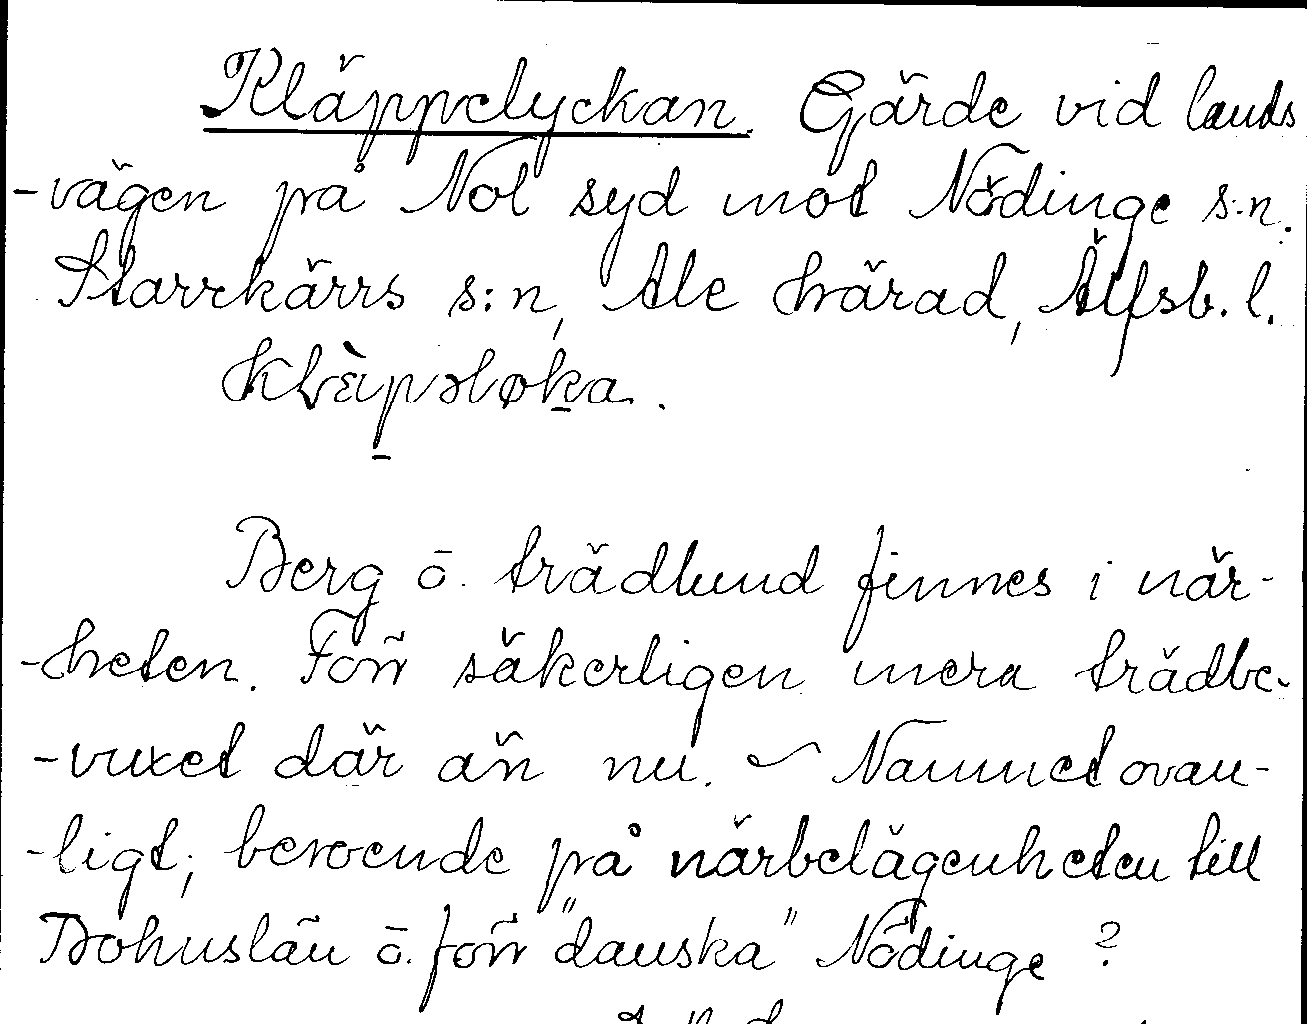 Kläppelyckan. Gärde vid lands
-vägen på Nol syd mot Nödinge s:n.
Starrkärrs s:n, Ale härad, Älfsb. l.
Berg o. trädlund finnes i när-
-heten. Förr säkerligen mera trädbe-
-vuxet där än nu. ~ Namnet ovan-
-ligt; beroende på närbelägenheten till
Bohuslän o. förr "danska" Nödinge ?